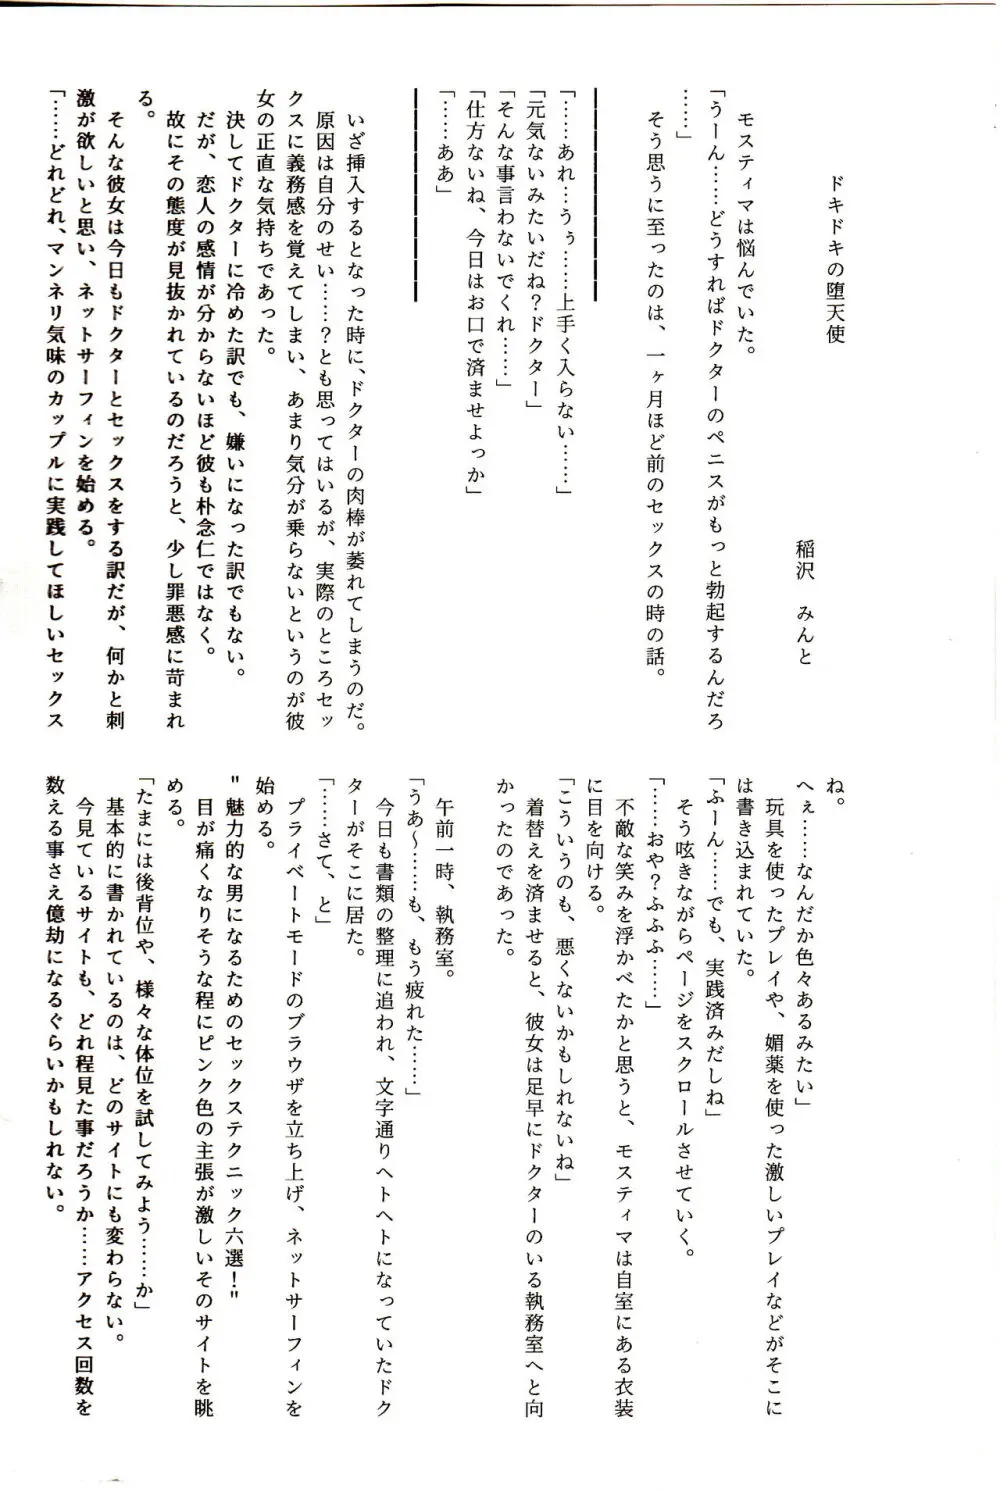 ドキドキの堕天使
稲沢　みんと
モスティマは悩んでいた。
「うーん……どうすればドクターのペニスがもっと勃起するんだろ
……」
そう思うに至ったのは、一ヶ月ほど前のセックスの時の話。
「……あれ…うぅ……上手く入らない……」
「元気ないみたいだね?ドクター」
「そんな事言わないでくれ……」
「仕方ないね、今日はお口で済ませよっか」
「……ああ」
いざ挿入するとなった時に、ドクターの肉棒が萎れてしまうのだ。
原因は自分のせい……?とも思ってはいるが、実際のところセッ
クスに義務感を覚えてしまい、あまり気分が乗らないというのが彼
女の正直な気持ちであった。
決してドクターに冷めた訳でも、嫌いになった訳でもない。
だが、恋人の感情が分からないほど彼も朴念仁ではなく。
故にその態度が見抜かれているのだろうと、少し罪悪感に苛まれ
る。
そんな彼女は今日もドクターとセックスをする訳だが、何かと刺
激が欲しいと思い、ネットサーフィンを始める。
「……どれどれ、マンネリ気味のカップルに実践してほしいセックス
ね。
へぇ……なんだか色々あるみたい」
玩具を使ったプレイや、媚薬を使った激しいプレイなどがそこに
は書き込まれていた。
「ふーん……でも、実践済みだしね」
そう呟きながらページをスクロールさせていく。
「……おや?ふふふ……」
不敵な笑みを浮かべたかと思うと、モスティマは自室にある衣装
に目を向ける。
「こういうのも、悪くないかもしれないね」
着替えを済ませると、彼女は足早にドクターのいる執務室へと向
かったのであった。
午前一時、執務室。
「うあ～……も、もう疲れた……」
今日も書類の整理に追われ、文字通りヘトヘトになっていたドク
ターがそこに居た。
「……さて、と」
プライベートモードのブラウザを立ち上げ、ネットサーフィンを
始める。
"魅力的な男になるためのセックステクニック六選!"
目が痛くなりそうな程にピンク色の主張が激しいそのサイトを眺
める。
「たまには後背位や、様々な体位を試してみよう……か」
基本的に書かれているのは、どのサイトにも変わらない。
今見ているサイトも、どれ程見た事だろうか……アクセス回数を
数える事さえ億劫になるぐらいかもしれない。